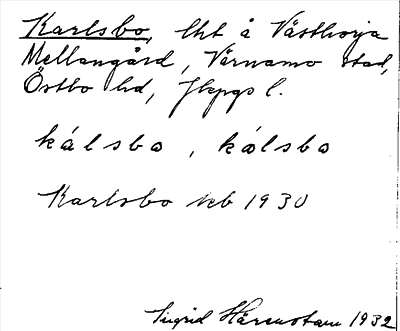 Karlsbo, lht å Västhorja
Mellangård, Värnamo stad,
Östbo hd, Jkpgs l.
kálsbo, kålsbo
Karlsbo jeb 1930
Ingrid Härenstam 1932